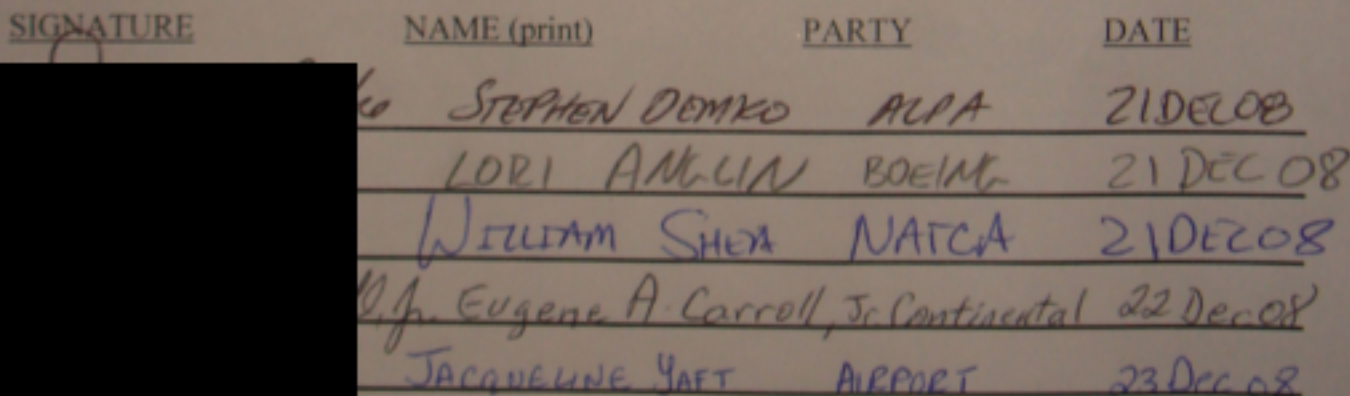 SIGNATURE NAME (print) PARTY DATE
STEPHEN DEMKO ALPA 21DEC08
LORI ANGLIN BOEING 21 DEC 08
WILLIAM SHEA NATCA 21DEC08
Jr. Eugene A. Carroll, Jr. Continental 22 Dec 08
JACQUELINE YAFT AIRPORT 23 Dec 08